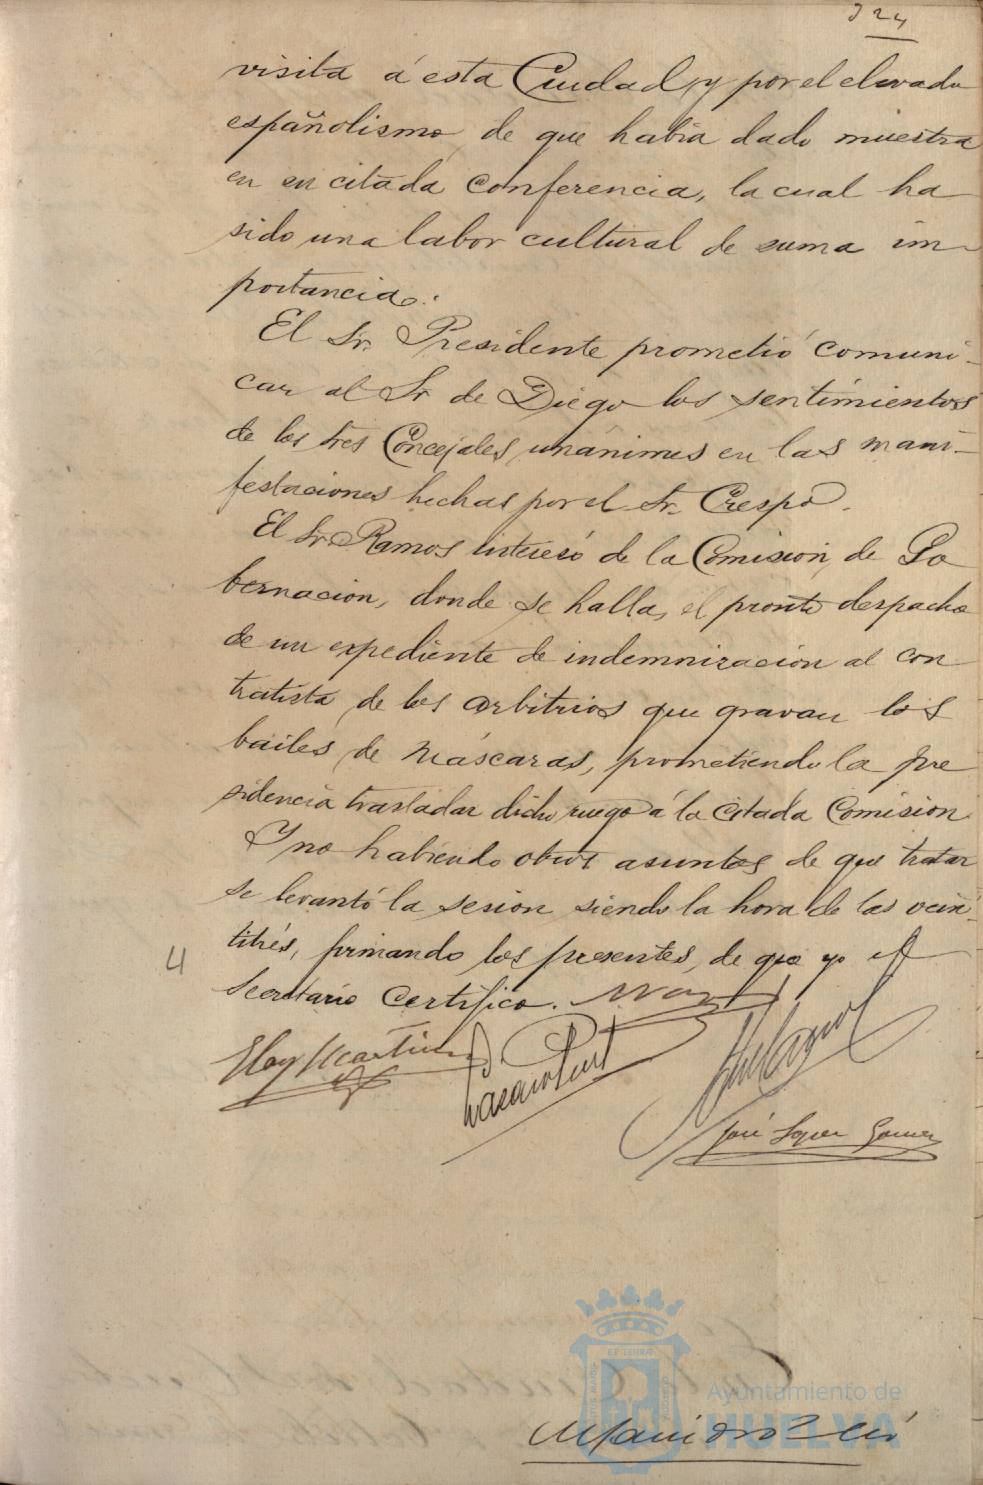 324
visita á esta Ciudad, y por el elevado
españolismo de que había dado muestra
en su citada conferencia, la cual ha
sido una labor cultural de suma im-
portancia.
El Sr. Presidente prometió comuni-
car al Sr de Diego los sentimientos
de los tres Concejales, unánimes en las mani-
festaciones hechas por el Sr. Crespo.
El Sr. Ramos interesó de la Comisión de Go
bernación, donde se halla, el pronto despacho
de un expediente de indemnización al con
tratista de los arbitrios que gravan los
bailes de máscaras, prometiendo la pre
sidencia trasladar dicho ruego á la citada Comisión
Y no habiendo otros asuntos de que tratar
se levantó la sesión siendo la hora de las vein-
titrés, firmando los presentes, de que yo el
4
Secretario Certifico.
Eloy Martin
José Lopez Gomez
Ayuntamiento de
HUELVA